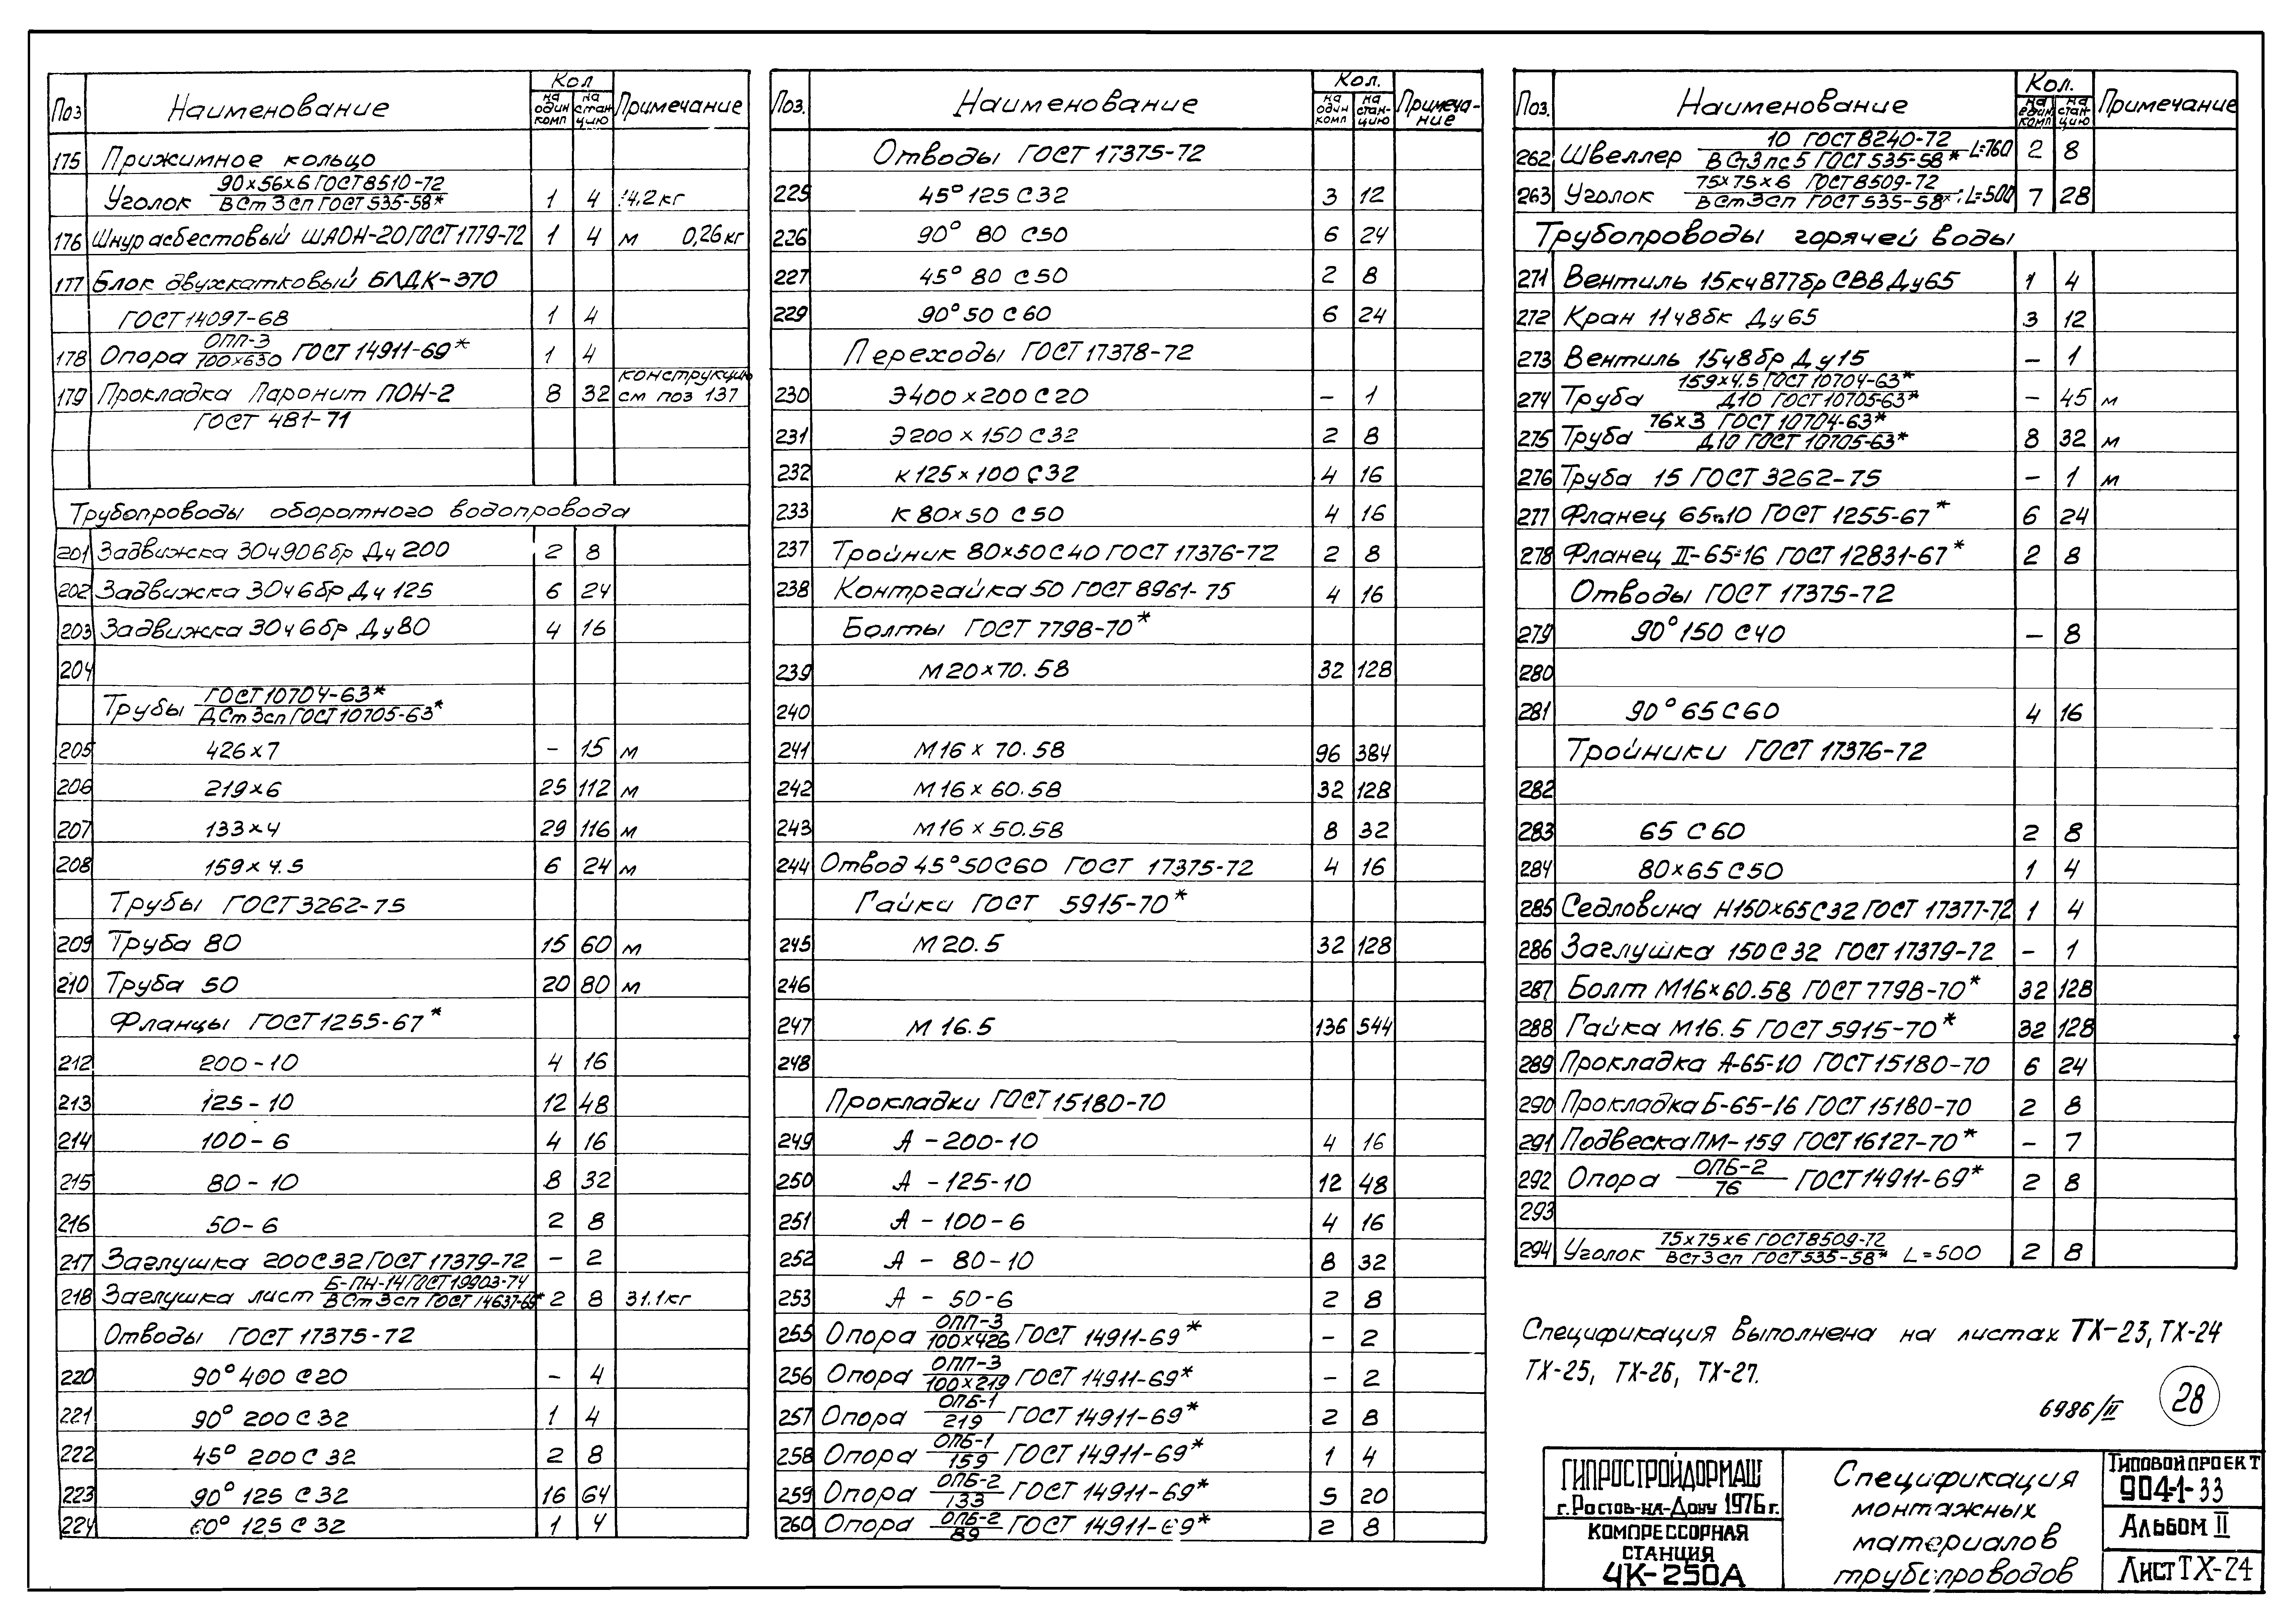 Поз Наименование Кол на один комп на станцию Примечание
175 Прижимное кольцо
Уголок 90×56×6 ГОСТ 8510-72 / ВСт3сп ГОСТ 535-58* 1 4 4.2 кг
176 Шнур асбестовый ШАОН-20 ГОСТ 1779-72 1 4 м 0,26 кг
177 Блок двухкатковый БЛДК-370
ГОСТ 14097-68 1 4
178 Опора ОПП-3 / 100×630 ГОСТ 14911-69* 1 4
179 Прокладка Паронит ПОН-2 8 32 конструкцию см поз 137
ГОСТ 481-71
Трубопроводы оборотного водопровода
201 Задвижка 30ч906бр Ду 200 2 8
202 Задвижка 30ч6бр Ду 125 6 24
203 Задвижка 30ч6бр Ду 80 4 16
204
Трубы ГОСТ 10704-63* / ДСт3сп ГОСТ 10705-63*
205 426×7 - 15 м
206 219×6 25 112 м
207 133×4 29 116 м
208 159×4.5 6 24 м
Трубы ГОСТ 3262-75
209 Труба 80 15 60 м
210 Труба 50 20 80 м
Фланцы ГОСТ 1255-67*
212 200-10 4 16
213 125-10 12 48
214 100-6 4 16
215 80-10 8 32
216 50-6 2 8
217 Заглушка 200С32 ГОСТ 17379-72 - 2
218 Заглушка лист Б-ПН-14 ГОСТ 19903-74 / ВСт3сп ГОСТ 14637-69* 2 8 31.1 кг
Отводы ГОСТ 17375-72
220 90° 400 С20 - 4
221 90° 200 С32 1 4
222 45° 200 С32 2 8
223 90° 125 С32 16 64
224 60° 125 С32 1 4
Поз. Наименование Кол. на один комп на станцию Примечание
Отводы ГОСТ 17375-72
225 45° 125 С32 3 12
226 90° 80 С50 6 24
227 45° 80 С50 2 8
229 90° 50 С60 6 24
Переходы ГОСТ 17378-72
230 Э400×200 С20 - 1
231 Э200×150 С32 2 8
232 К125×100 С32 4 16
233 К80×50 С50 4 16
237 Тройник 80×50С40 ГОСТ 17376-72 2 8
238 Контргайка 50 ГОСТ 8961-75 4 16
Болты ГОСТ 7798-70*
239 М20×70.58 32 128
240
241 М16×70.58 96 384
242 М16×60.58 32 128
243 М16×50.58 8 32
244 Отвод 45°50С60 ГОСТ 17375-72 4 16
Гайки ГОСТ 5915-70*
245 М20.5 32 128
246
247 М16.5 136 544
248
Прокладки ГОСТ 15180-70
249 А-200-10 4 16
250 А-125-10 12 48
251 А-100-6 4 16
252 А-80-10 8 32
253 А-50-6 2 8
255 Опора ОПП-3 / 100×426 ГОСТ 14911-69* - 2
256 Опора ОПП-3 / 100×219 ГОСТ 14911-69* - 2
257 Опора ОПБ-1 / 219 ГОСТ 14911-69* 2 8
258 Опора ОПБ-1 / 159 ГОСТ 14911-69* 1 4
259 Опора ОПБ-2 / 133 ГОСТ 14911-69* 5 20
260 Опора ОПБ-2 / 89 ГОСТ 14911-69* 2 8
Поз. Наименование Кол. на един. комп на станцию Примечание
262 Швеллер 10 ГОСТ 8240-72 / ВСт3пс5 ГОСТ 535-58* L=760 2 8
263 Уголок 75×75×6 ГОСТ 8509-72 / ВСт3сп ГОСТ 535-58* L=500 7 28
Трубопроводы горячей воды
271 Вентиль 15кч877бр СВВ Ду65 1 4
272 Кран 11ч8бк Ду 65 3 12
273 Вентиль 15ч8бр Ду15 - 1
274 Труба 159×4.5 ГОСТ 10704-63* / Д10 ГОСТ 10705-63* - 45 м
275 Труба 76×3 ГОСТ 10704-63* / Д10 ГОСТ 10705-63* 8 32 м
276 Труба 15 ГОСТ 3262-75 - 1 м
277 Фланец 65-10 ГОСТ 1255-67* 6 24
278 Фланец II-65-16 ГОСТ 12831-67* 2 8
Отводы ГОСТ 17375-72
279 90° 150 С40 - 8
280
281 90° 65 С60 4 16
Тройники ГОСТ 17376-72
282
283 65 С60 2 8
284 80×65 С50 1 4
285 Седловина Н150×65С32 ГОСТ 17377-72 1 4
286 Заглушка 150С32 ГОСТ 17379-72 - 1
287 Болт М16×60.58 ГОСТ 7798-70* 32 128
288 Гайка М16.5 ГОСТ 5915-70* 32 128
289 Прокладка А-65-10 ГОСТ 15180-70 6 24
290 Прокладка Б-65-16 ГОСТ 15180-70 2 8
291 Подвеска ПМ-159 ГОСТ 16127-70* - 7
292 Опора ОПБ-2 / 76 ГОСТ 14911-69* 2 8
293
294 Уголок 75×75×6 ГОСТ 8509-72 / ВСт3сп ГОСТ 535-58* L=500 2 8
Спецификация выполнена на листах ТХ-23, ТХ-24
ТХ-25, ТХ-26, ТХ-27.
6986/II 28
ГИПРОСТРОЙДОРМАШ
г. Ростов-на-Дону 1976 г.
КОМПРЕССОРНАЯ
СТАНЦИЯ
4К-250А
Спецификация
монтажных
материалов
трубопроводов
ТИПОВОЙ ПРОЕКТ
904-1-33
АЛЬБОМ II
ЛИСТ ТХ-24